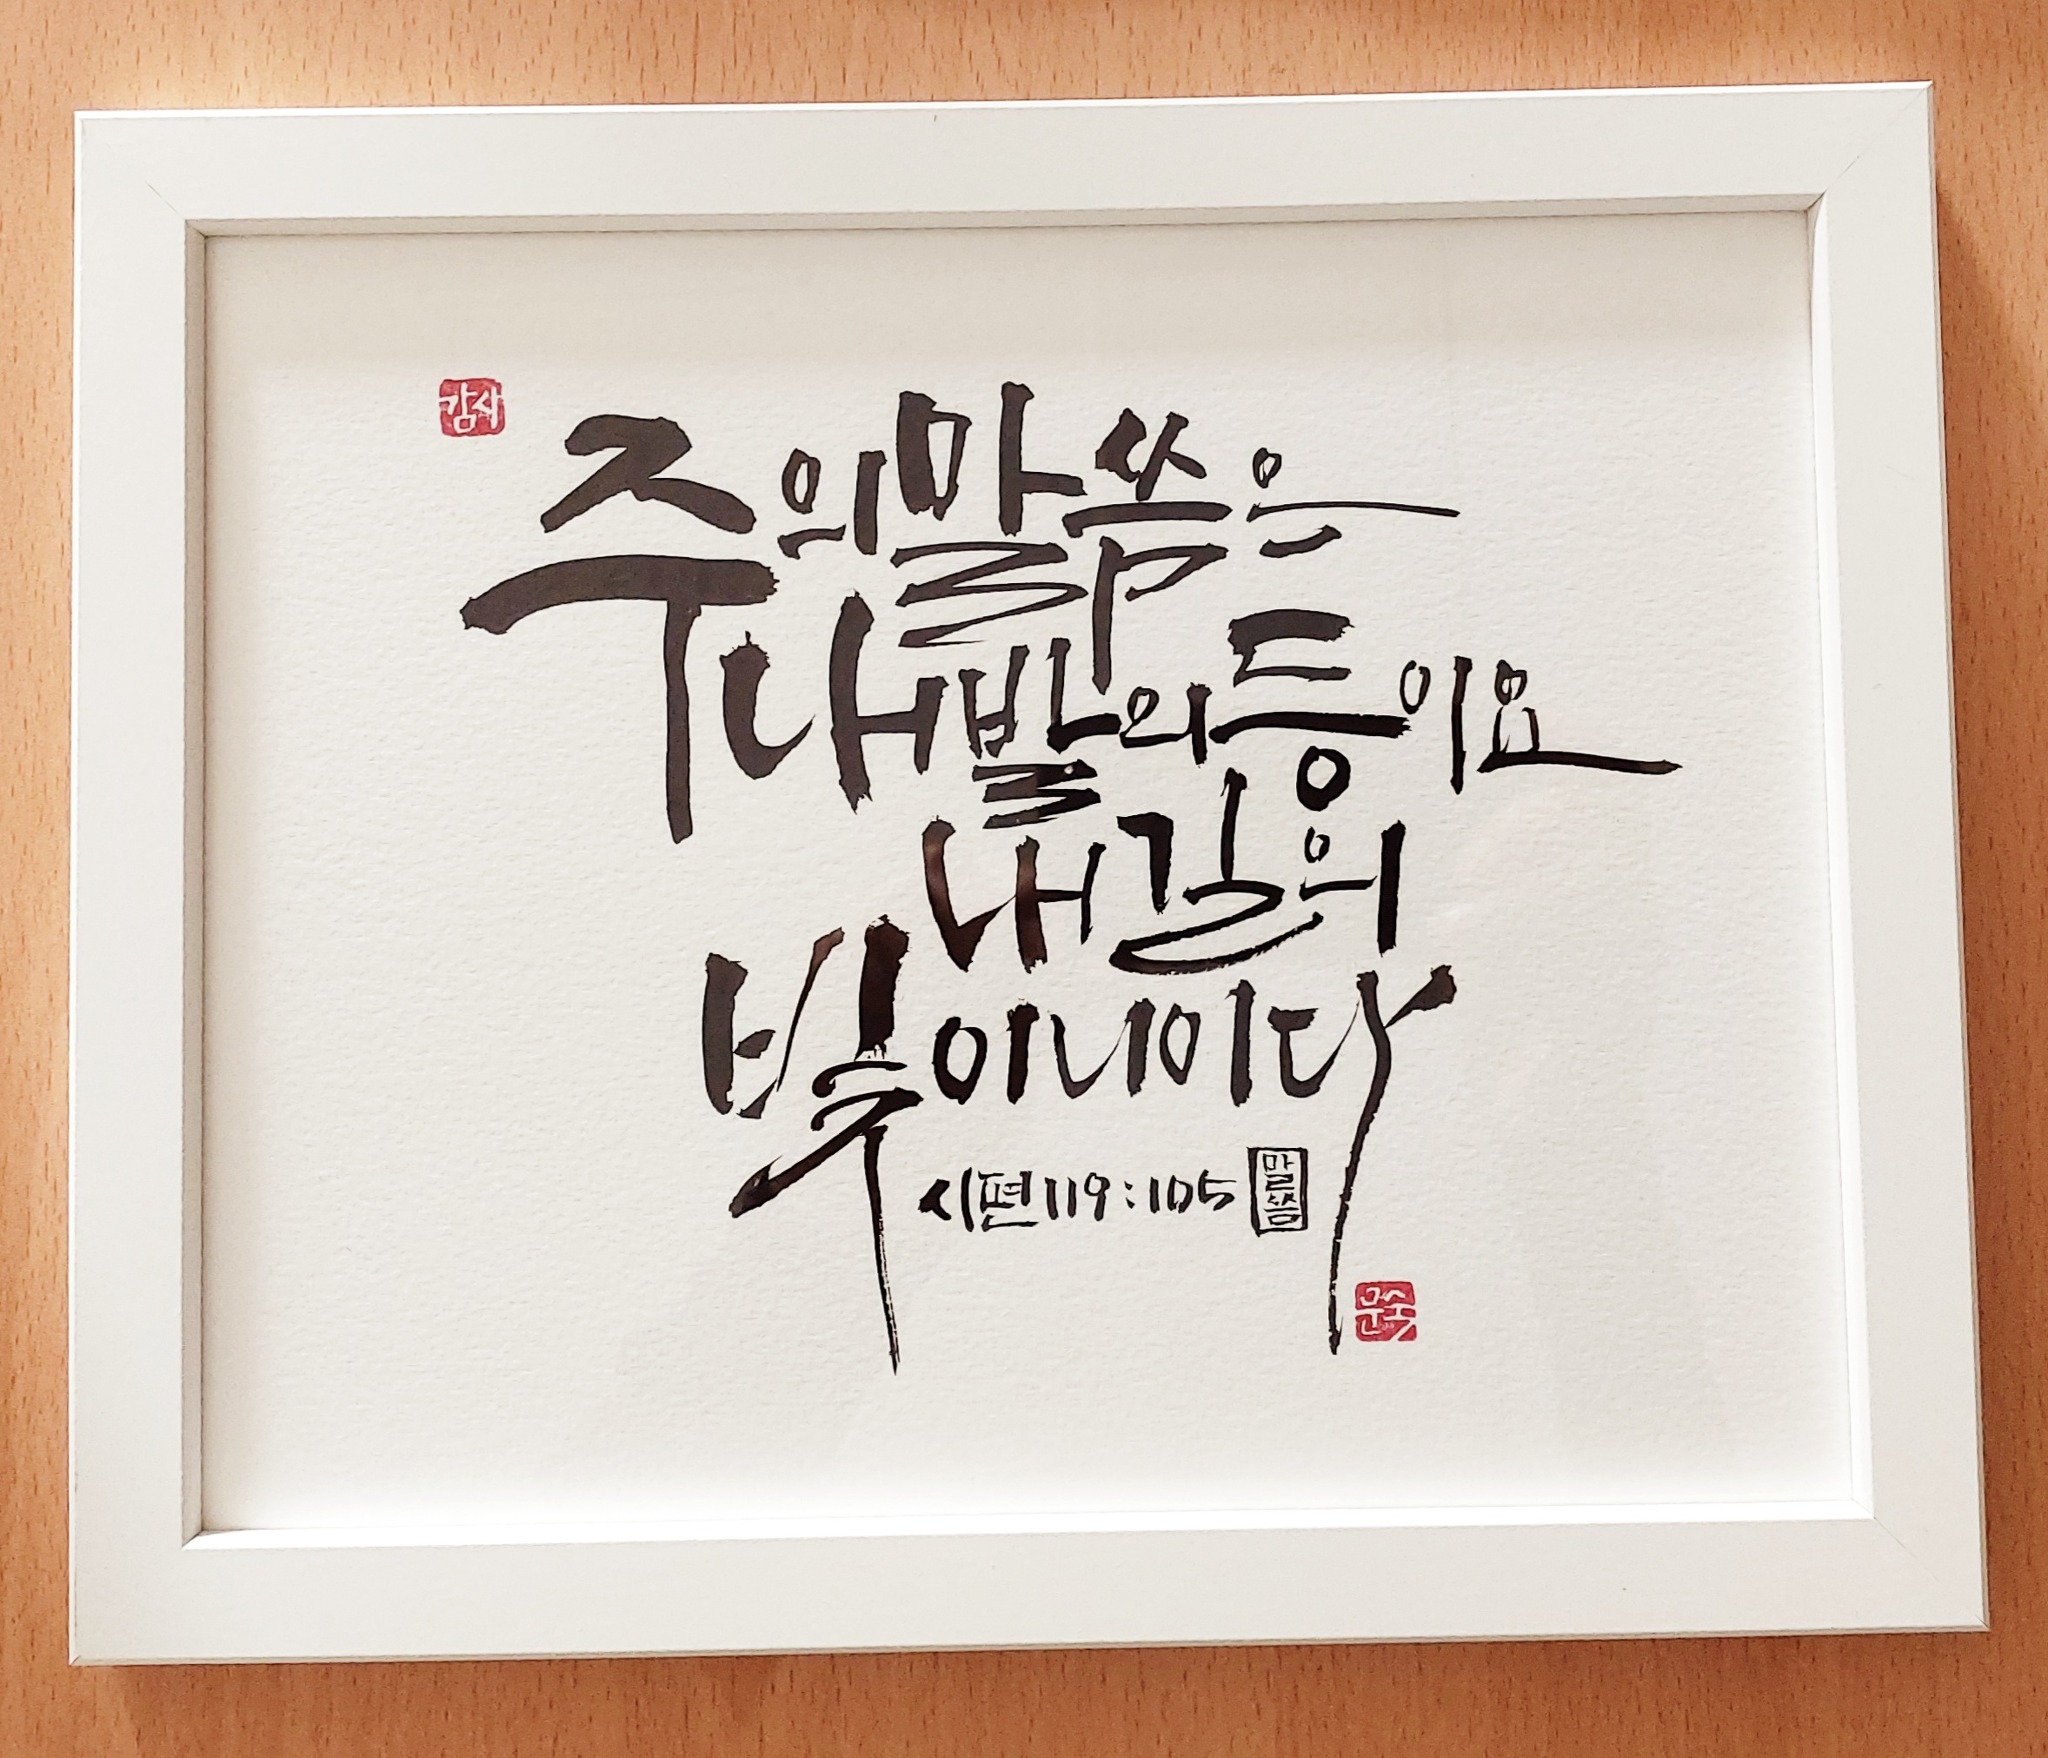 감사
주의 말씀은
내 발의 등이요
내 길의
빛이니이다
시편 119:105
말씀